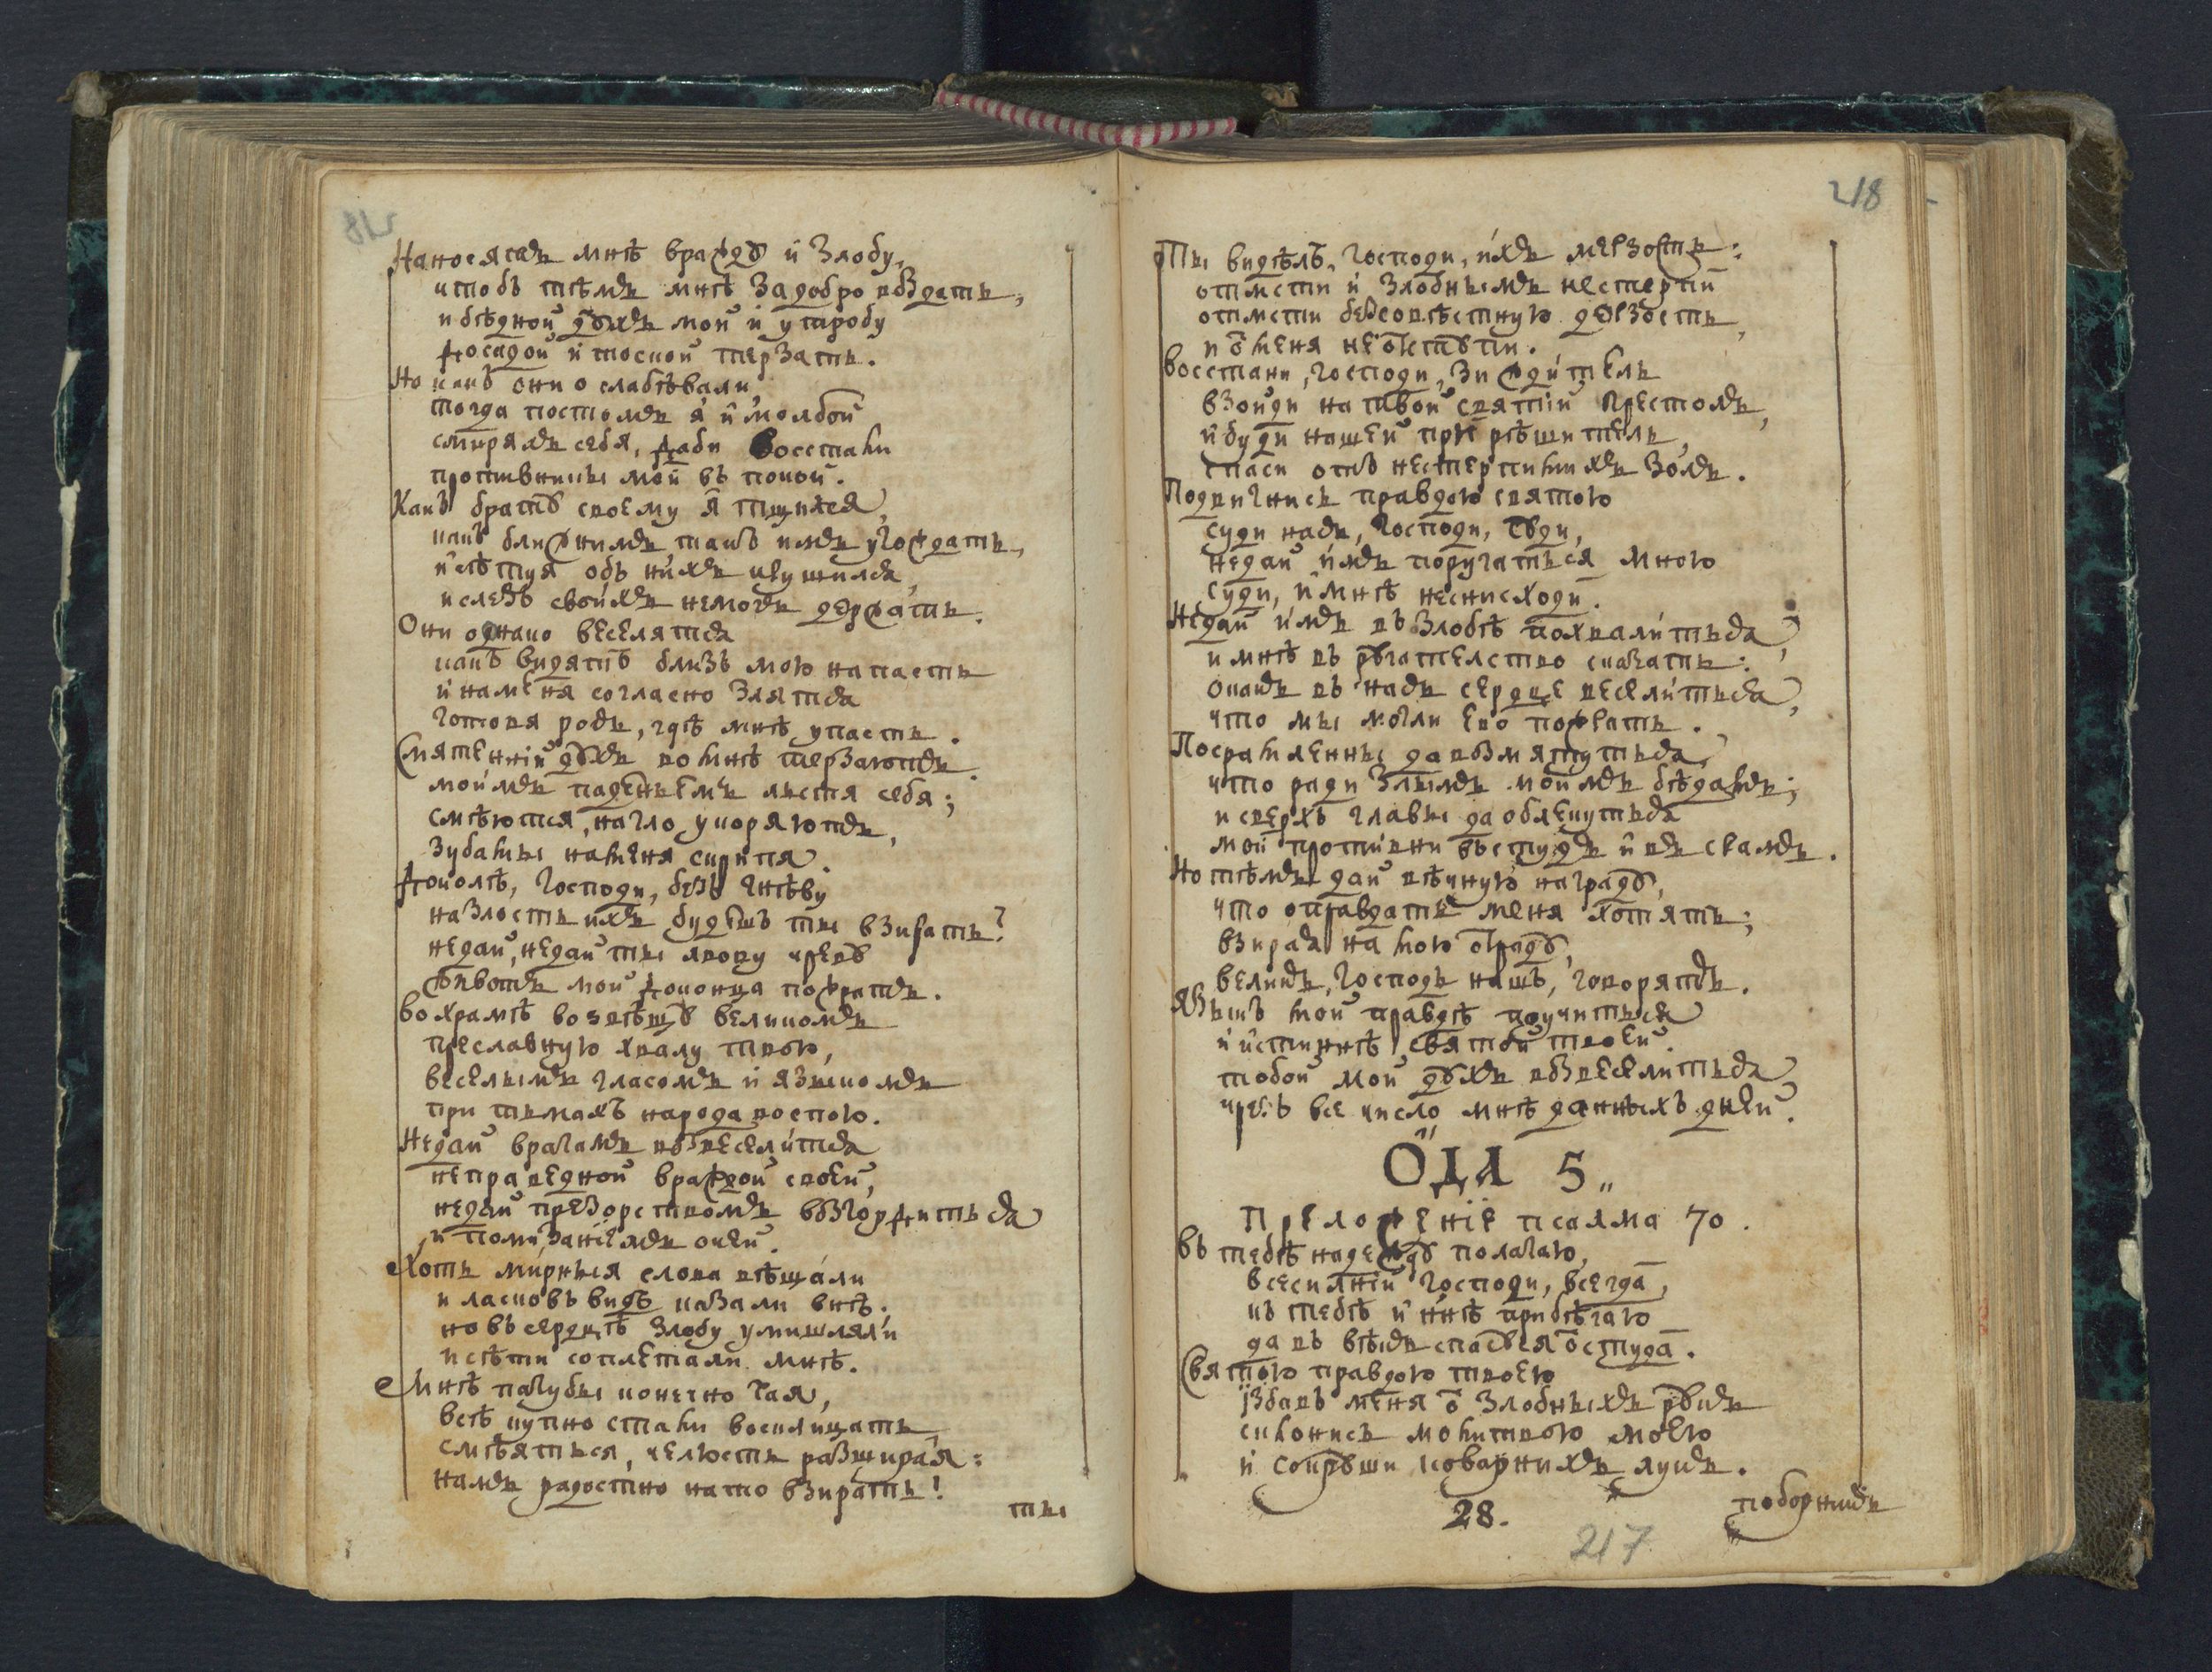 Наносятъ мнѣ вражду и злобу,
чтобъ тѣмъ мнѣ за добро воздать,
и бѣдной духъ мой и утробу
досадой и тоской терзать.
Но какъ они ослабѣвали,
тогда постомъ я и молбой
смирялъ себя, дабы восстали
противники мои въ покой.
Какъ брату своему я тщился,
какъ ближнимъ такъ имъ угождать,
и сѣтуя объ нихъ крушился,
и слезъ своихъ не могъ держать.
Они однако веселятся
какъ видятъ близъ мою напасть
и на меня согласно злятся
готовя ровъ, гдѣ мнѣ упасть.
Смятенній духъ во мнѣ терзаютъ
моимъ паденьемъ льстя себя;
смѣются, нагло укоряютъ,
зубами на меня скрыпя.
Доколѣ, Господи, безъ гнѣву
на злость ихъ будешъ ты взирать?
не дай, не дай ты львову чреву
животъ мой до конца пожрать.
во храмѣ возвѣщу великомъ
преславную хвалу твою,
веселымъ гласомъ и языкомъ
при тьмахъ народа воспою.
Не дай врагамъ возвеселится
неправедной враждой своей,
не дай презорствомъ возгордиться
и помизаніемъ очей.
Хоть мирныя слова вѣщали
и ласковъ видъ казали внѣ,
но въ сердцѣ злобу умишляли
и сѣти соплетали мнѣ.
Мнѣ пагубы конечно чая,
всѣ купно стали восклицать,
смѣяться, челюсть разширяя:
намъ радостно на то взирать!
ты
218
Ты видѣлъ, Господи, ихъ мерзость:
отмсти и злобнымъ не стерпи
отмсти безсовѣстную дерзость,
и ѿ меня не отступи.
Восстани, Господи, зиждитель
взойди на твой святій престолъ,
и буди нашей при рѣшитель,
спаси отъ нестерпимихъ золъ.
Подвигнись правдою святою
суди насъ, Господи, суди,
не дай имъ поругаться мною
суди, и мнѣ не снисходи.
Не дай имъ въ злобѣ похвалиться,
и мнѣ въ ругателство сказать:
о какъ въ насъ сердце веселиться,
что мы могли его пожрать.
Посрамленны да возмятуться,
что ради злымъ моимъ бѣдамъ;
и сверхъ главы да облекуться
мои противни въ студъ и въ срамъ.
Но тѣмъ дай вѣчную награду,
что оправдать меня хотятъ;
взирая на мою отраду,
великъ, Господь нашъ, говорятъ.
Языкъ мой правдѣ поучиться
и истиннѣ святой твоей.
тобой мой духъ возвеселиться
чрезъ все число мнѣ данныхъ дней.
ОДА 5„
Преложеніе псалма 70.
Въ тебѣ надежду полагаю,
всесилній Господи, всегда,
къ тебѣ и ннѣ прибѣгаю
да въ вѣкъ спасуся ѿ студа.
Святою правдою твоею
избавь меня ѿ злобныхъ рукъ
склонись молитвою моею
и сокруши коварнихъ лукъ.
28.
поборникъ
217